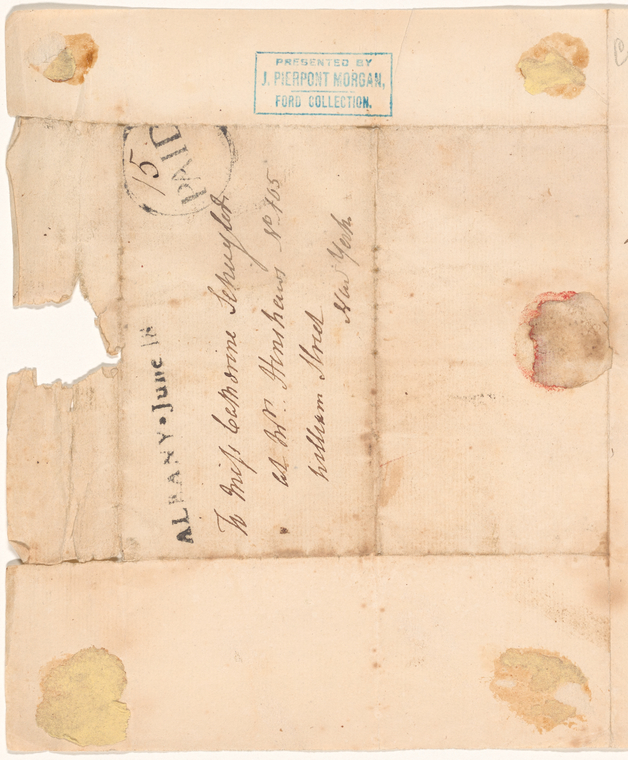 PRESENTED BY
J. PIERPONT MORGAN,
FORD COLLECTION.
15
PAID
ALBANY • June 18
To Miss Catharine Schuyler
at Mr. Henshaws No 105
William Street
New York